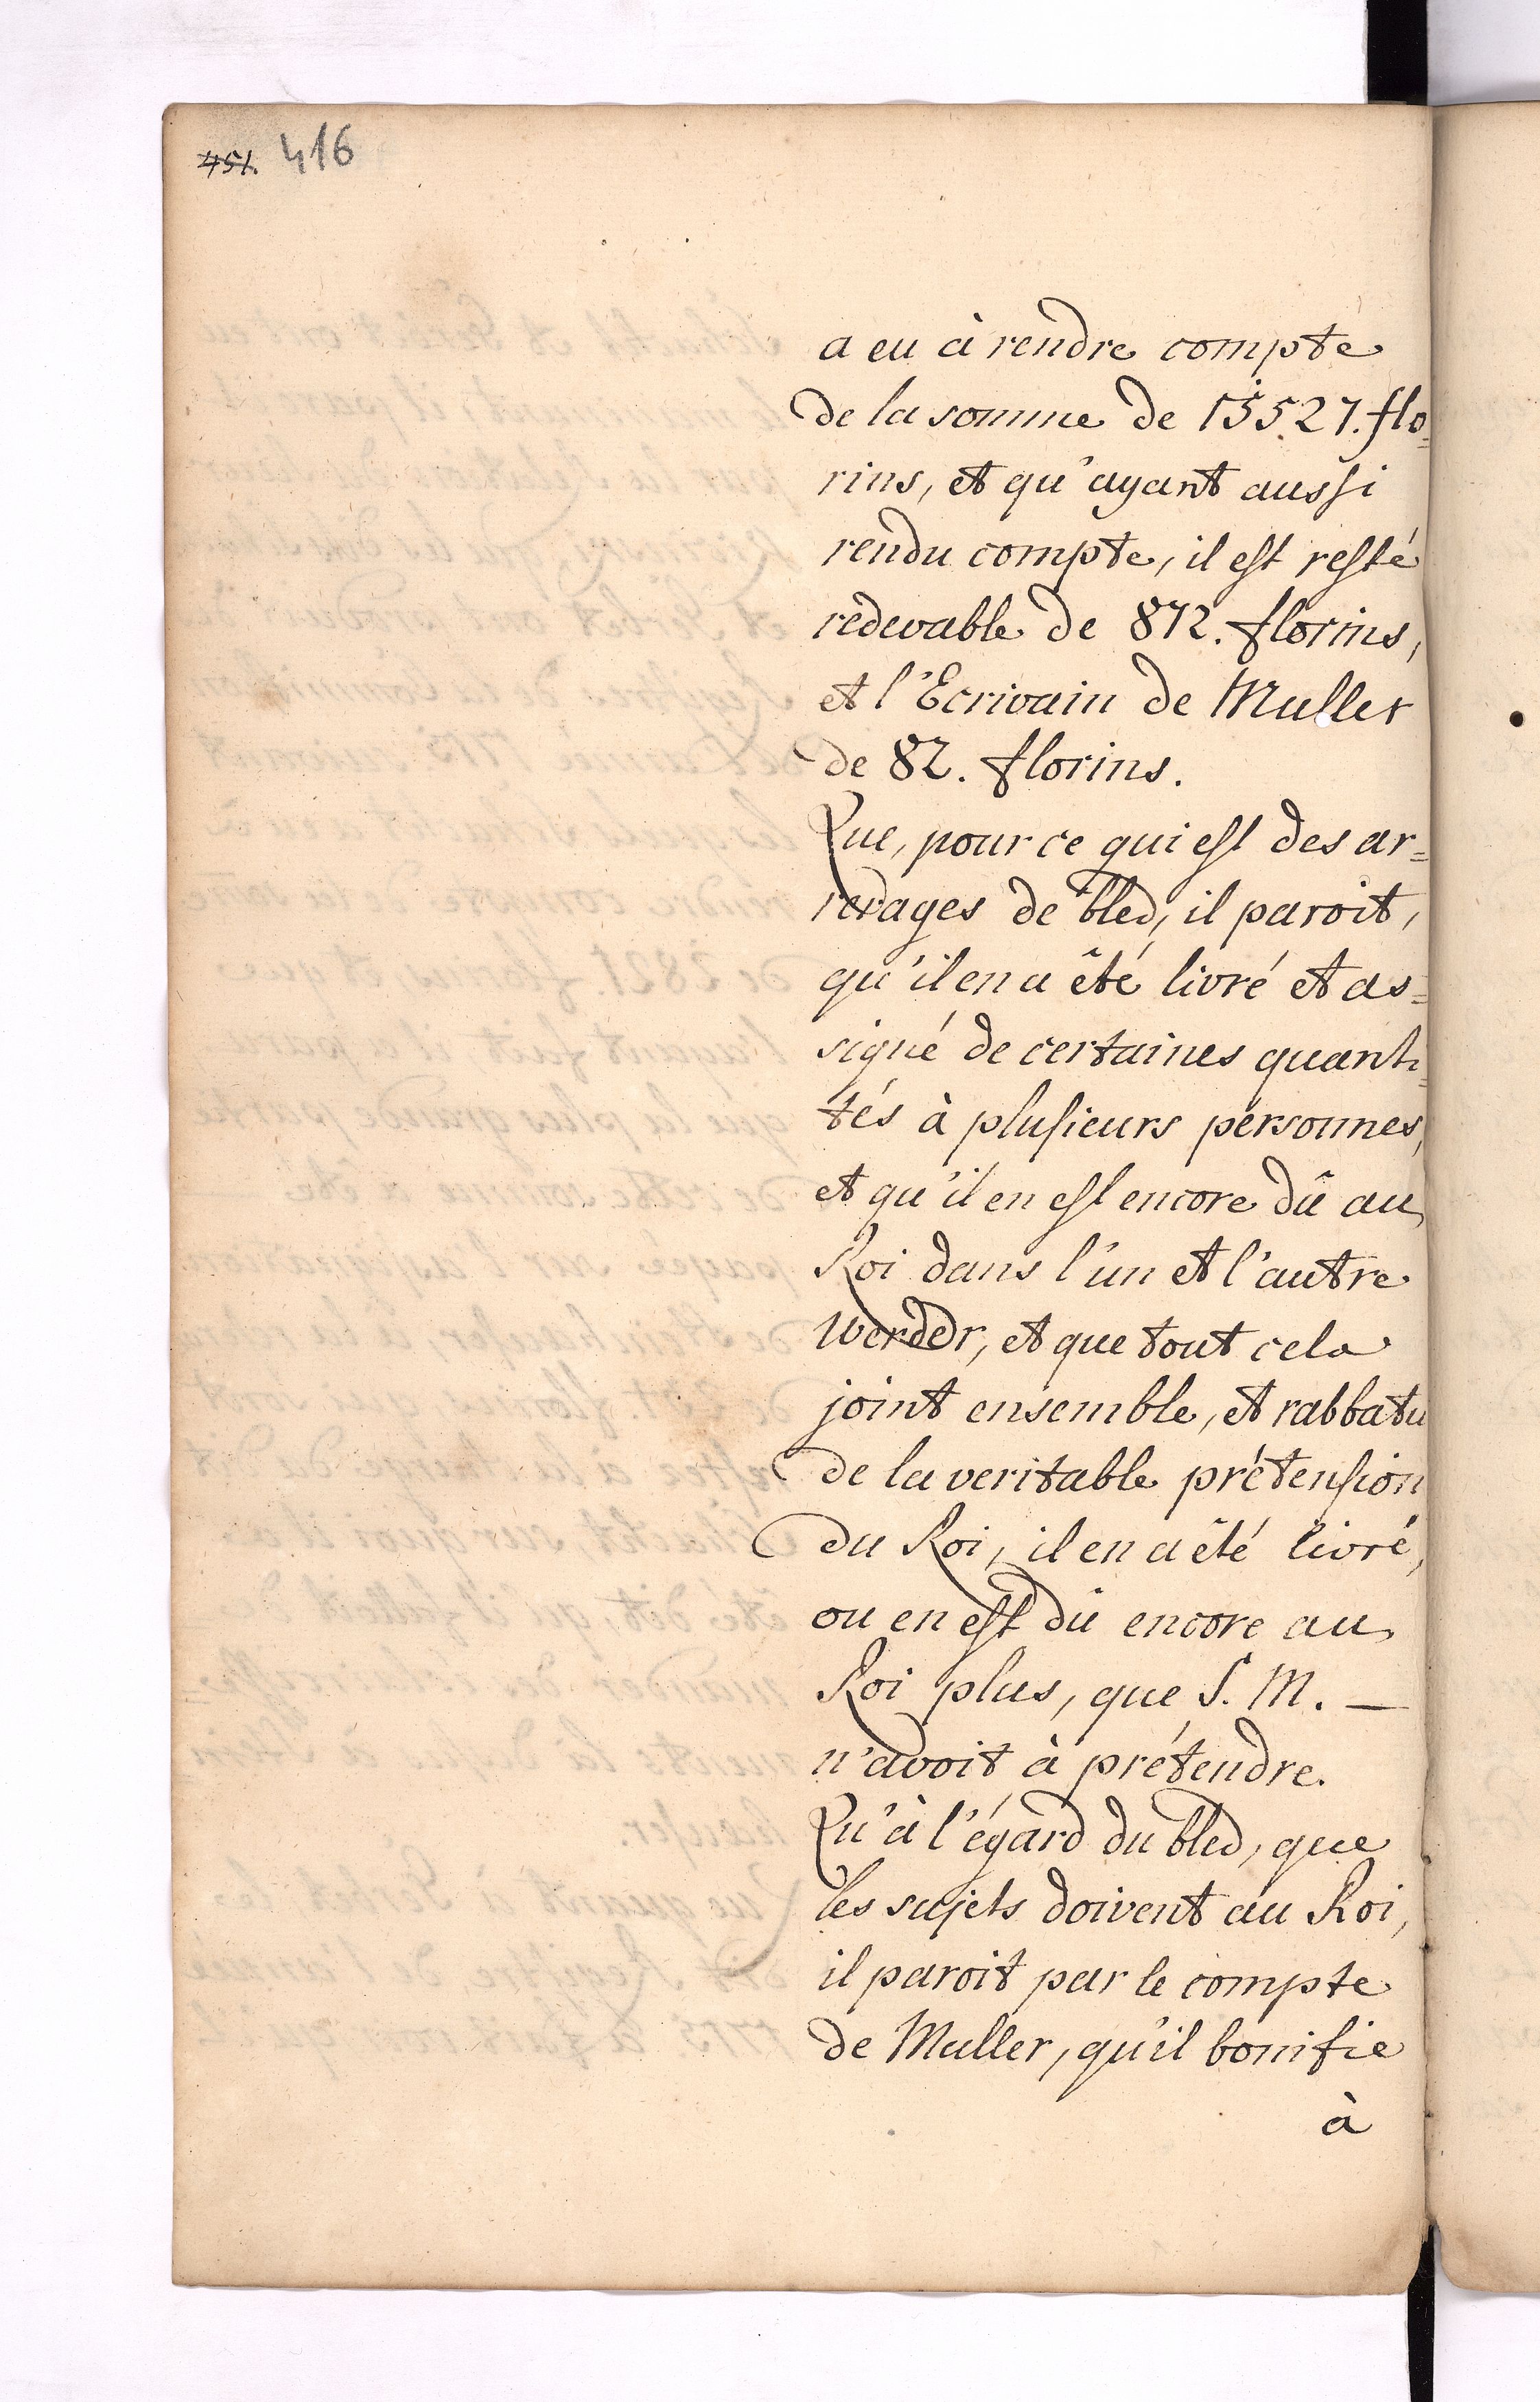 451. 416
a eu à rendre compte
de la somme de 15527. flo=
rins, et qu'ayant aussi
rendu compte, il est resté
redevable de 872. florins,
et l'Ecrivain de Muller
de 82. florins.
Que, pour ce qui est des ar=
rerages de bled, il paroit,
qu'il en a êté livré et as=
signé de certaines quanti=
tés à plusieurs personnes,
et qu'il en est encore dû au
Roi dans l'un et l'autre
Werder, et que tout cela
joint ensemble, et rabbatu
de la veritable prétension
du Roi, il en a êté livré,
ou en est dû encore au
Roi plus, que S. M. —
n'avoit à prétendre.
Qu'à l'égard du bled, que
les sujets doivent au Roi,
il paroit par le compte
de Muller, qu'il bonifie
à